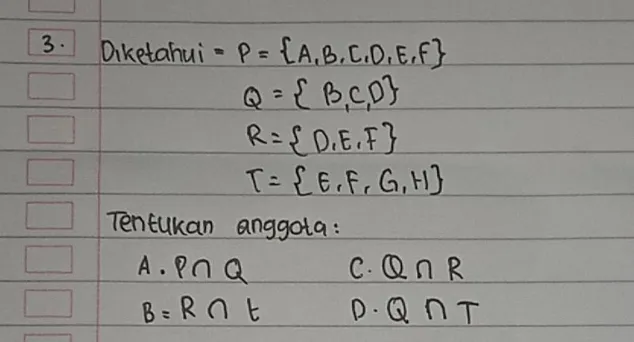 3. Diketahui = P = {A, B, C, D, E, F}
Q = { B, C, D}
R = { D, E, F}
T = {E, F, G, H}
Tentukan anggota:
A. P ∩ Q C. Q ∩ R
B = R ∩ t D. Q ∩ T